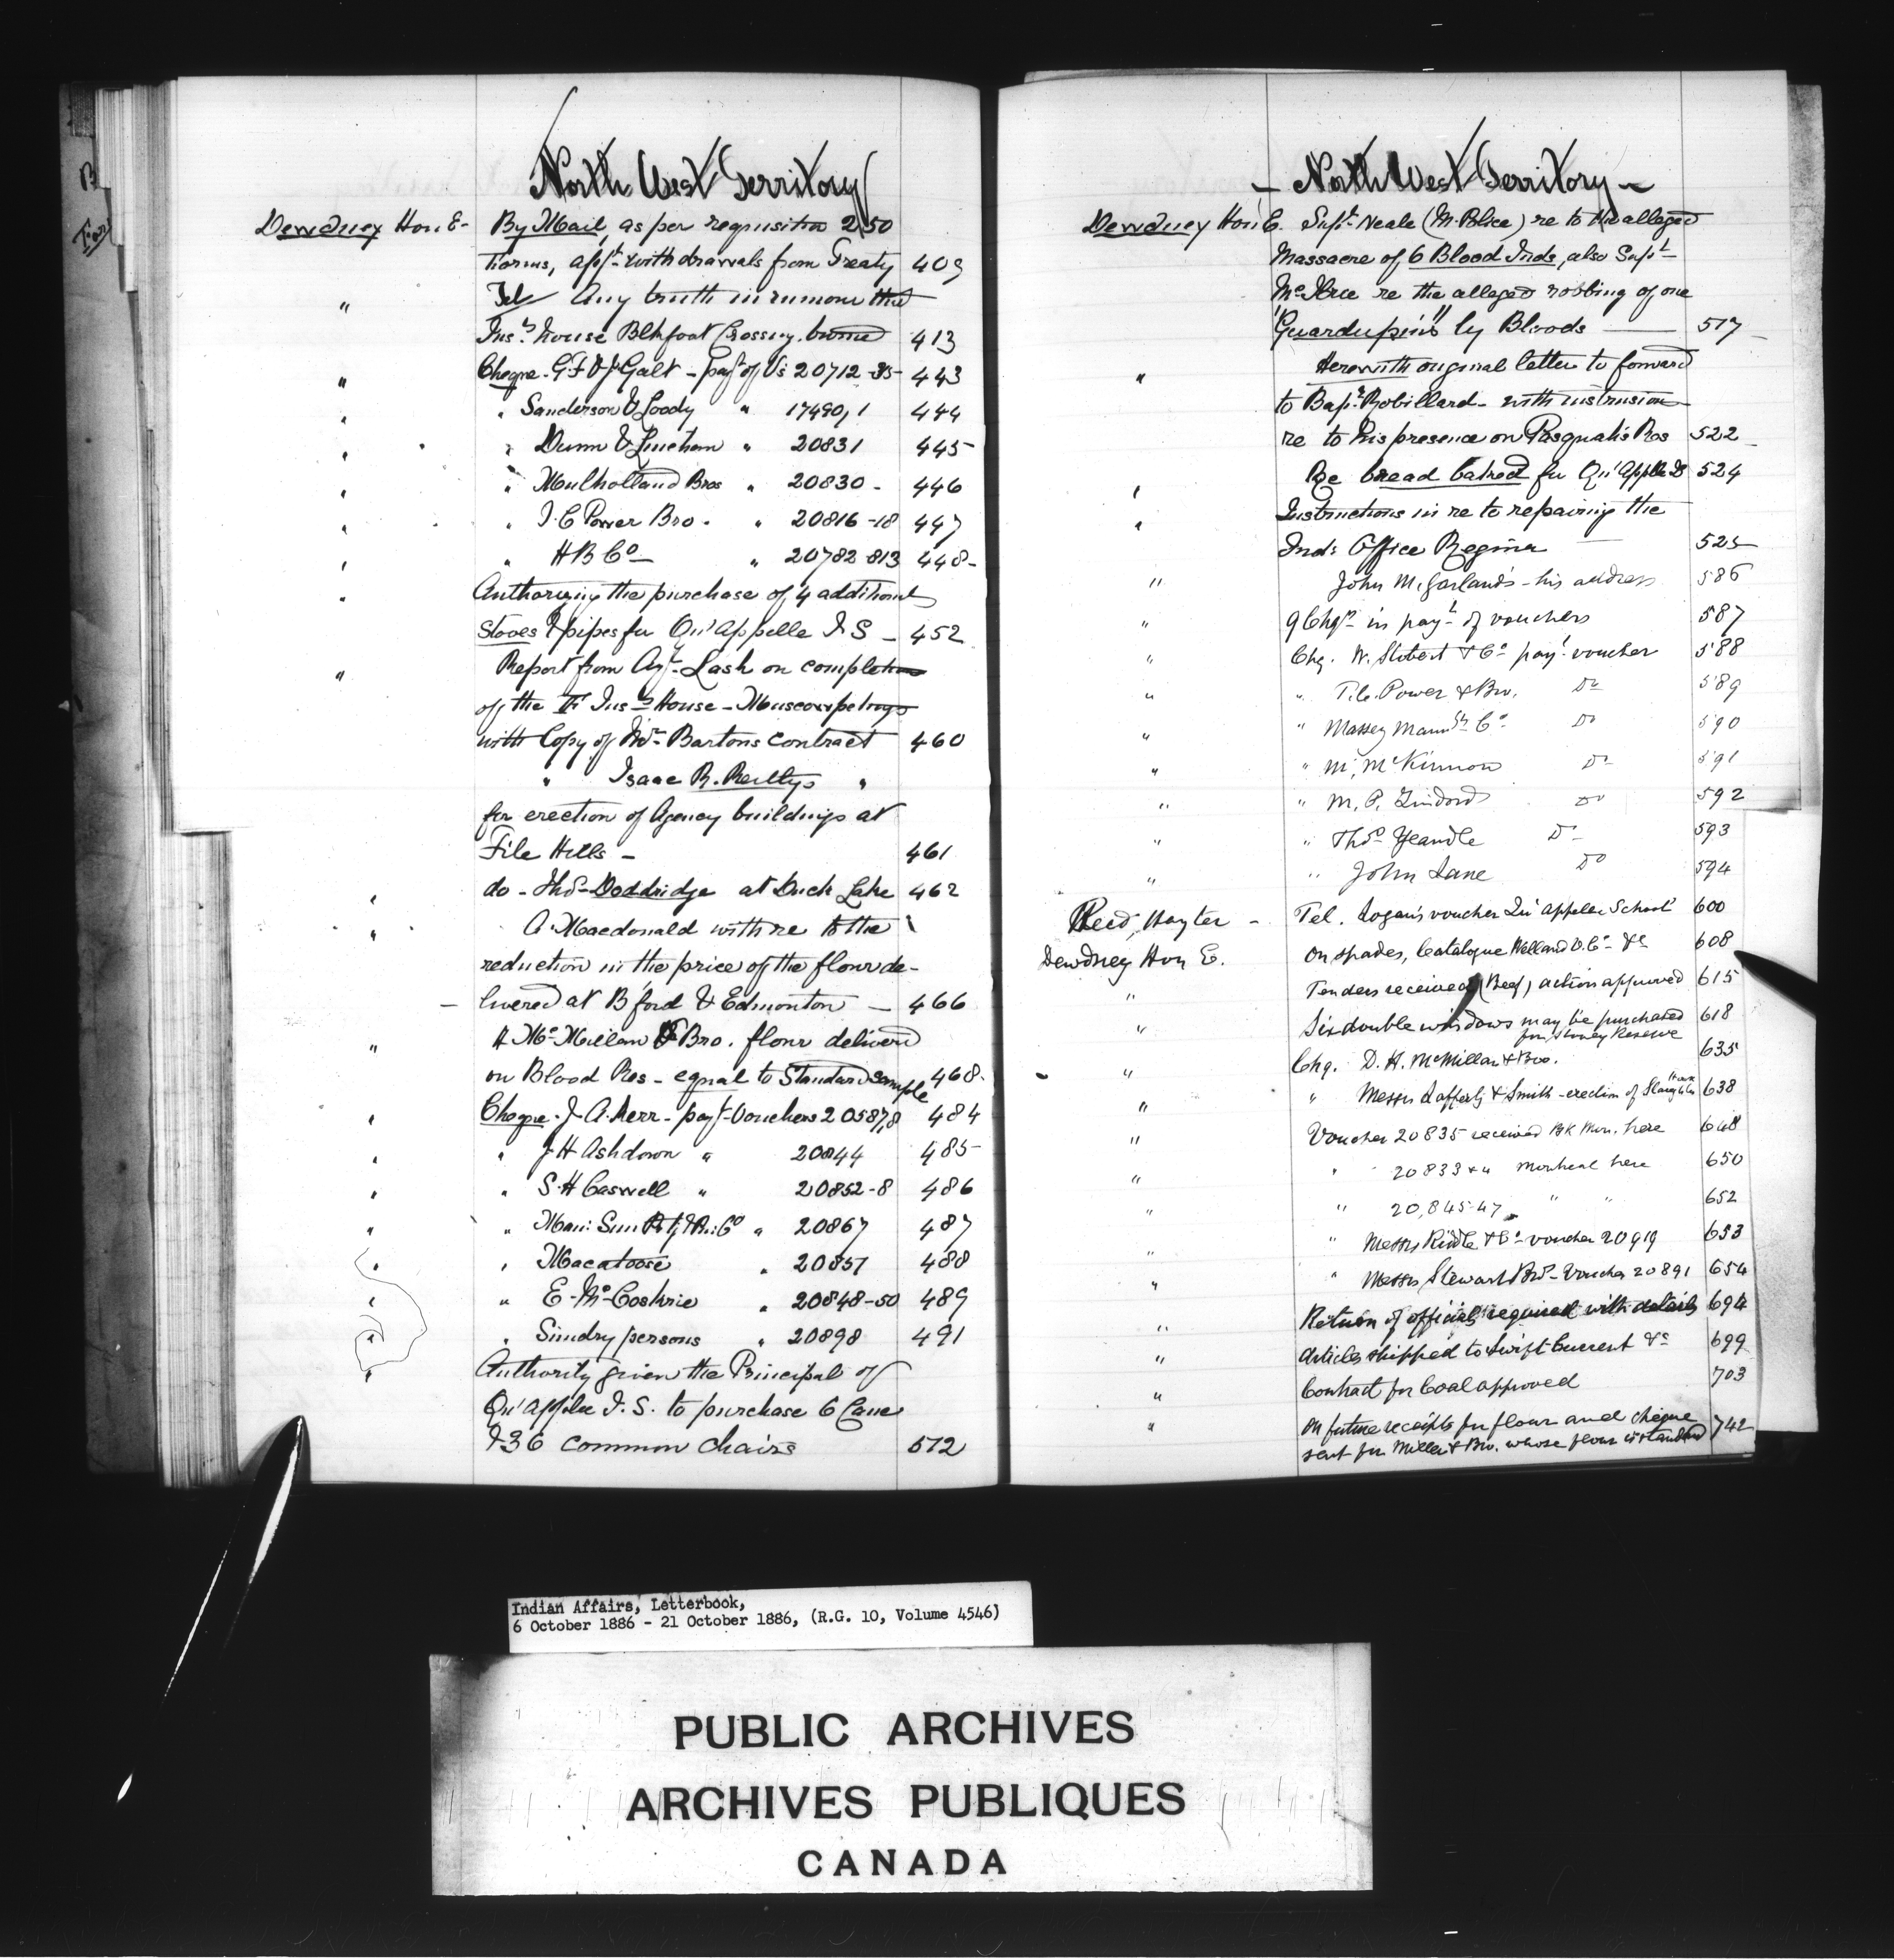 North West Territory
Dewdney Hon E- By Mail, as per requisition 250
Forms, appt withdrawals from Treaty 409
" Tel Any truth in rumour that
Ins. house Blkfoot Crossing burned 413
" Cheque - G. F & J Galt - payt of Vs 20712-35 443
" " Sanderson & Loody " 17490,1 444
" " Dunn & Lineham " 20831 445
" " Mulholland Bros " 20830 - 446
" " I. G Power Bro. " 20816-18 447
" " H B Co - " 20782-813 448-
" Authorizing the purchase of 4 additional
Stoves & pipes for Qu'Appelle I S - 452
" Report from Agt. Lash on completion
of the Ins House - Muscowpetungs
with Copy of Bartons contract 460
" Isaac R. Reillys "
for erection of Agency buildings at
File Hills - 461
" do - Thos Doddridge at Duck Lake 462
" A. Macdonald with re to the
reduction in the price of the flour de-
- livered at B'ford & Edmonton - 466
" Mc Millan & Bro. flour delivered
on Blood Res - equal to Standard sample 468.
" Cheque - J. A. Kerr - payt Vouchers 20587,8 484
" " J H Ashdown " 20844 485
" " S. H Caswell " 20852-8 486
" " Man: Sun " 20867 487
" " Macatoose " 20857 488
" " E. Mc Coskrie " 20848-50 489
" " Sundry persons " 20898 491
" Authority given the Principal of
Qu'Appelle I. S. to purchase 6 Cane
& 36 common chairs 512
- North West Territory -
Dewdney Hon E. Supt Neale (M. Police) re to the alleged
Massacre of 6 Blood Inds, also Supt
Mc Illree re the alleged robbing of one
"Guardupins" by Bloods - 517
" Herewith original letter to forward
to Bapt Robillard - with instrusion
re to his presence on Pasquah's Res 522
" Re bread baked for Qu'Appelle 524
" Instructions in re to repairing the
Ind: Office Regina 525
" John M. Garland's - his address 586
" 9 Chqs in payt of vouchers 587
" Chq. W. Stobart & Co payt voucher 588
" " T. C. Power & Bro. Do 589
" " Massey Manuf Co Do 590
" " M. McKinnon Do 591
" " M. P. Do 592
" " Thos Yeandle Do 593
" " John Lane Do 594
Reed, Hayter - Tel. Logan's voucher Qu'Appelle School 600
Dewdney Hon E. On spades, Catalogue Welland V. Co &c 608
" Tenders received (Beef) action approved 615
" Six double windows may be purchased
for Stoney Reserve 618
" Chq. D. H. McMillan & Bro. 635
" " Messrs Lafferty & Smith - erection of Slaughter House 638
" Voucher 20835 received Bk Mon. here 648
" " 20833 & 4 Montreal here 650
" " 20,845-47 " " 652
" " Messrs Riddle & Co - voucher 20919 653
" " Messrs Stewart Bros - Voucher 20891 654
" Return of officials required with details 694
" Articles shipped to Swift Current &c 699
" Contract for Coal approved 703
" On future receipts for flour and cheque
sent for Miller & Bro. whose flour is standard 742
Indian Affairs, Letterbook,
6 October 1886 - 21 October 1886, (R.G. 10, Volume 4546)
PUBLIC ARCHIVES
ARCHIVES PUBLIQUES
CANADA